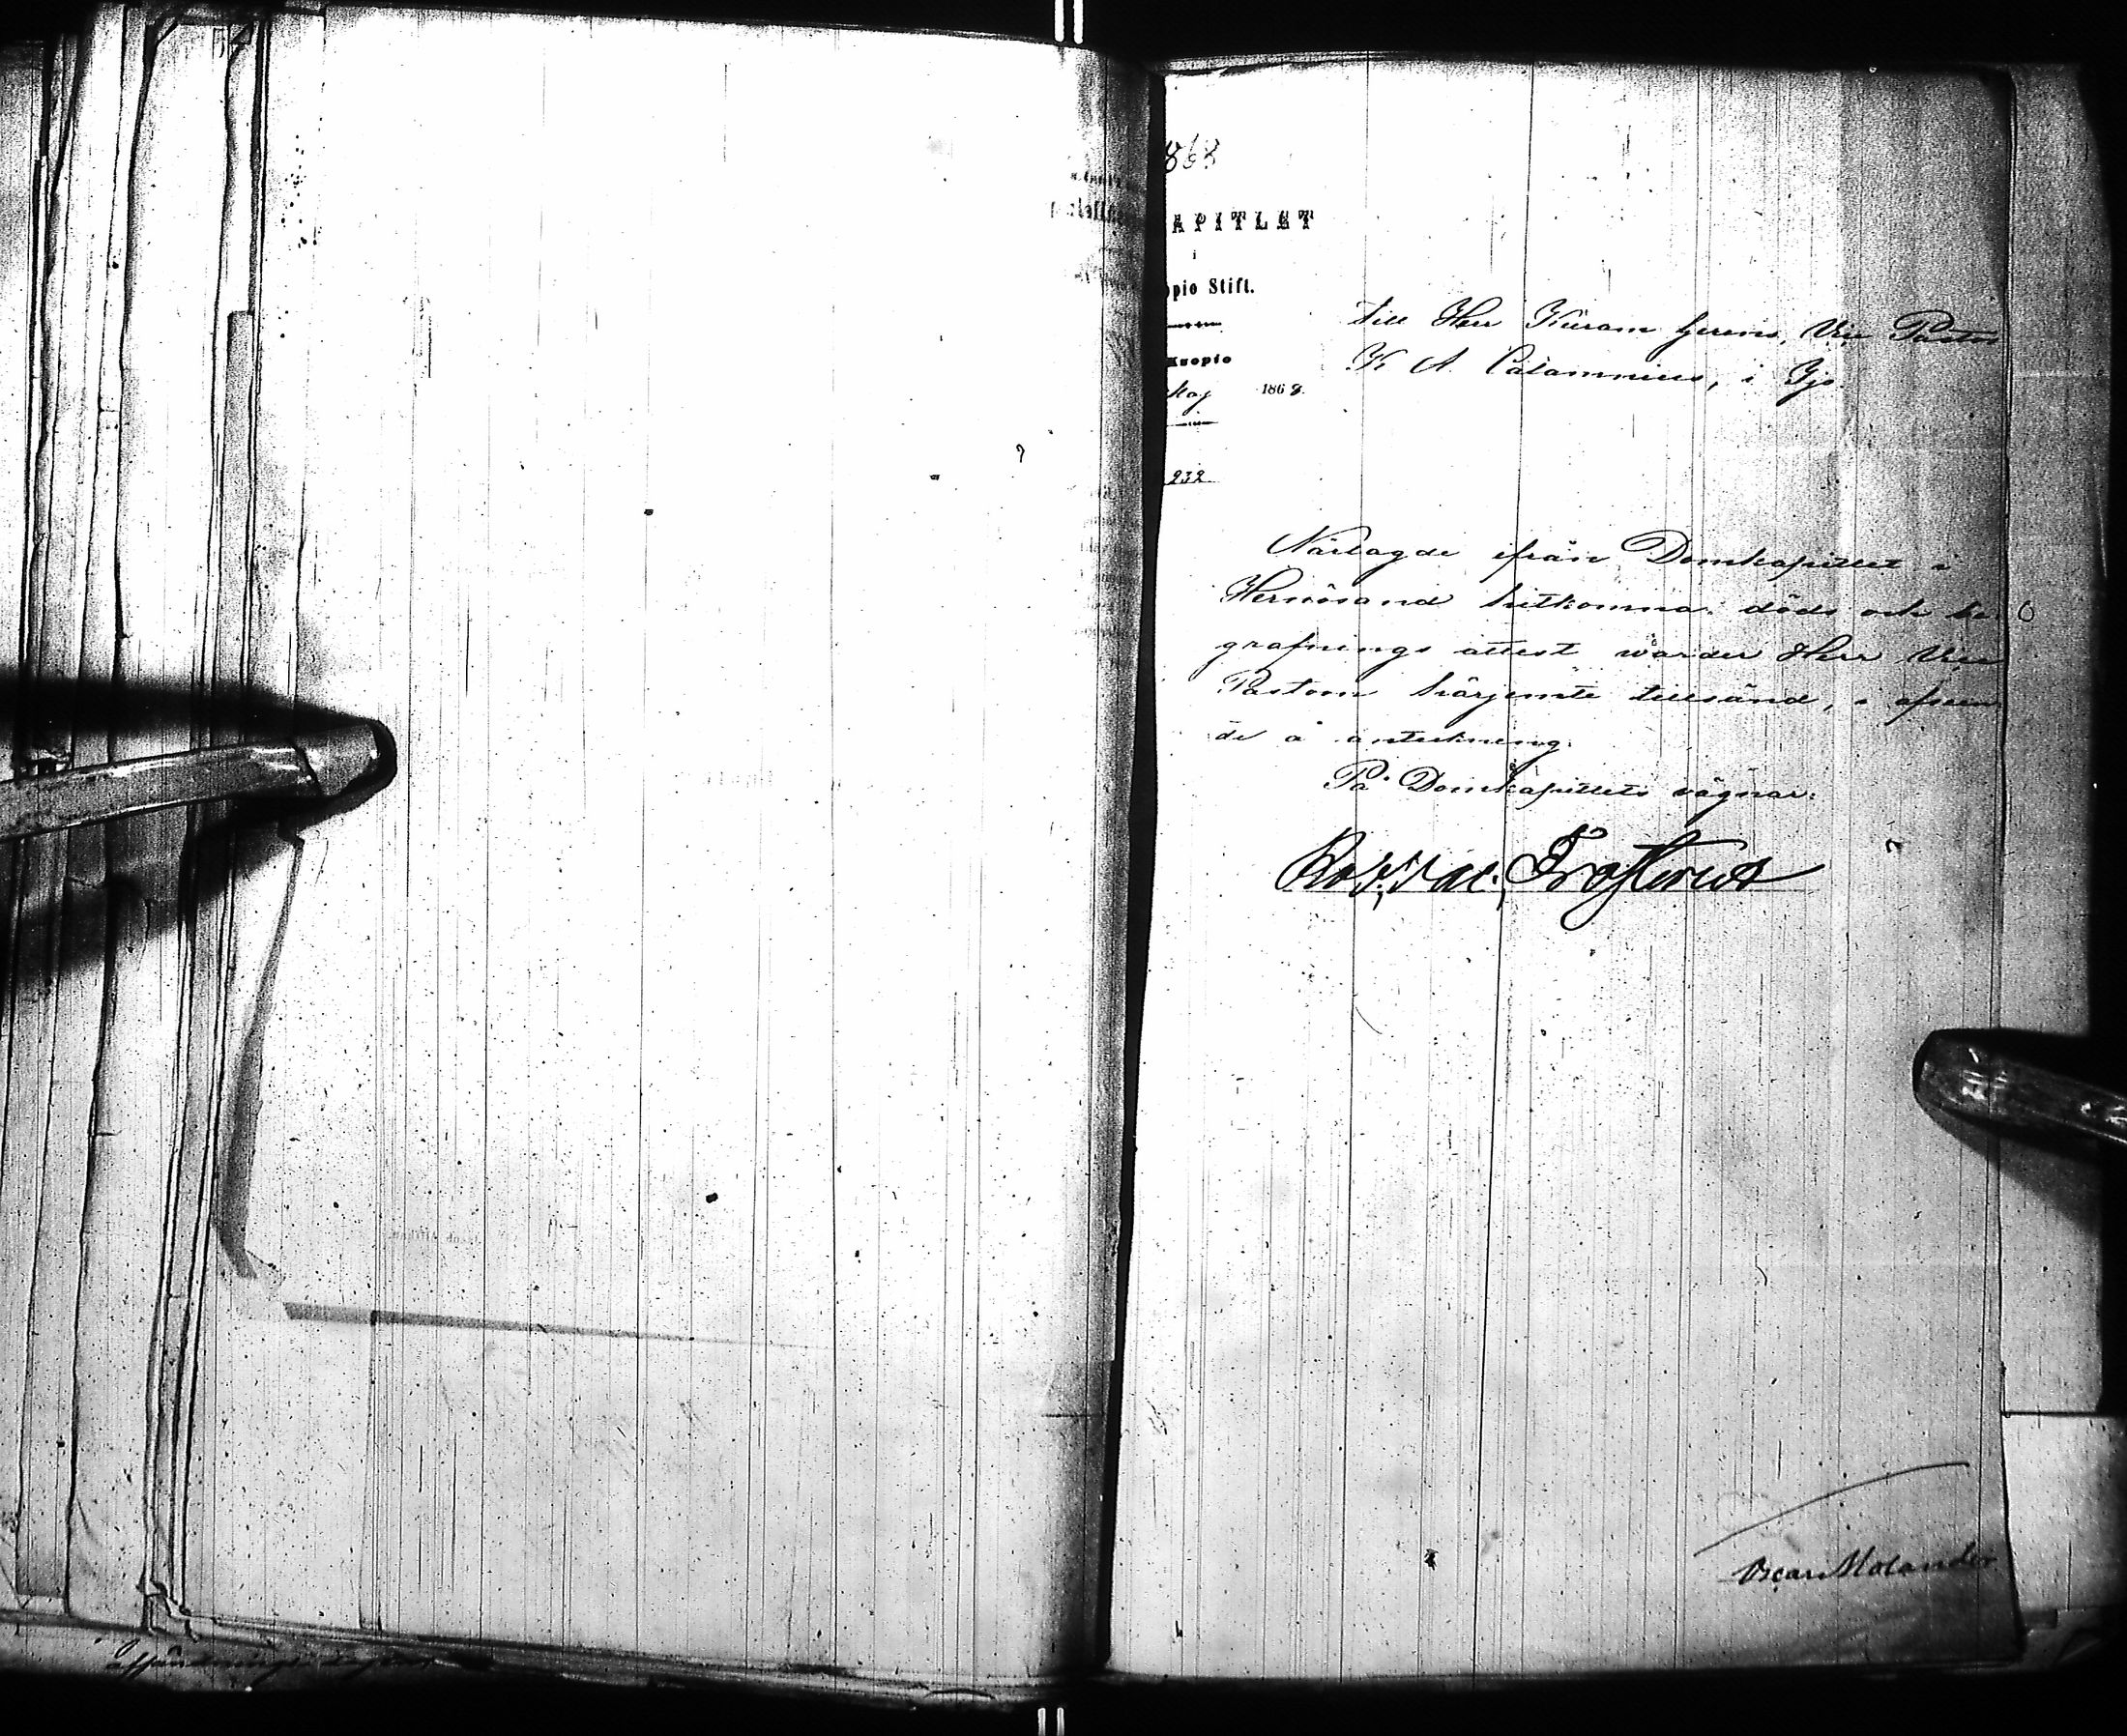 868
APITLET
i
pio Stift.
Kuopio
1868.
232
Till Herr Kiiram gerens, Vice Pastor
K A Calamnius, i Ijo.
Närlagde ifrån Domkapitlet i
Hernösand hitkomna döds och be-
grafnings attest warder Herr Vice
Pastorn härjemte tillsänd, i afseen
de å anteckning.
På Domkapitlets vägnar:
Frosterus
Oscar Molander